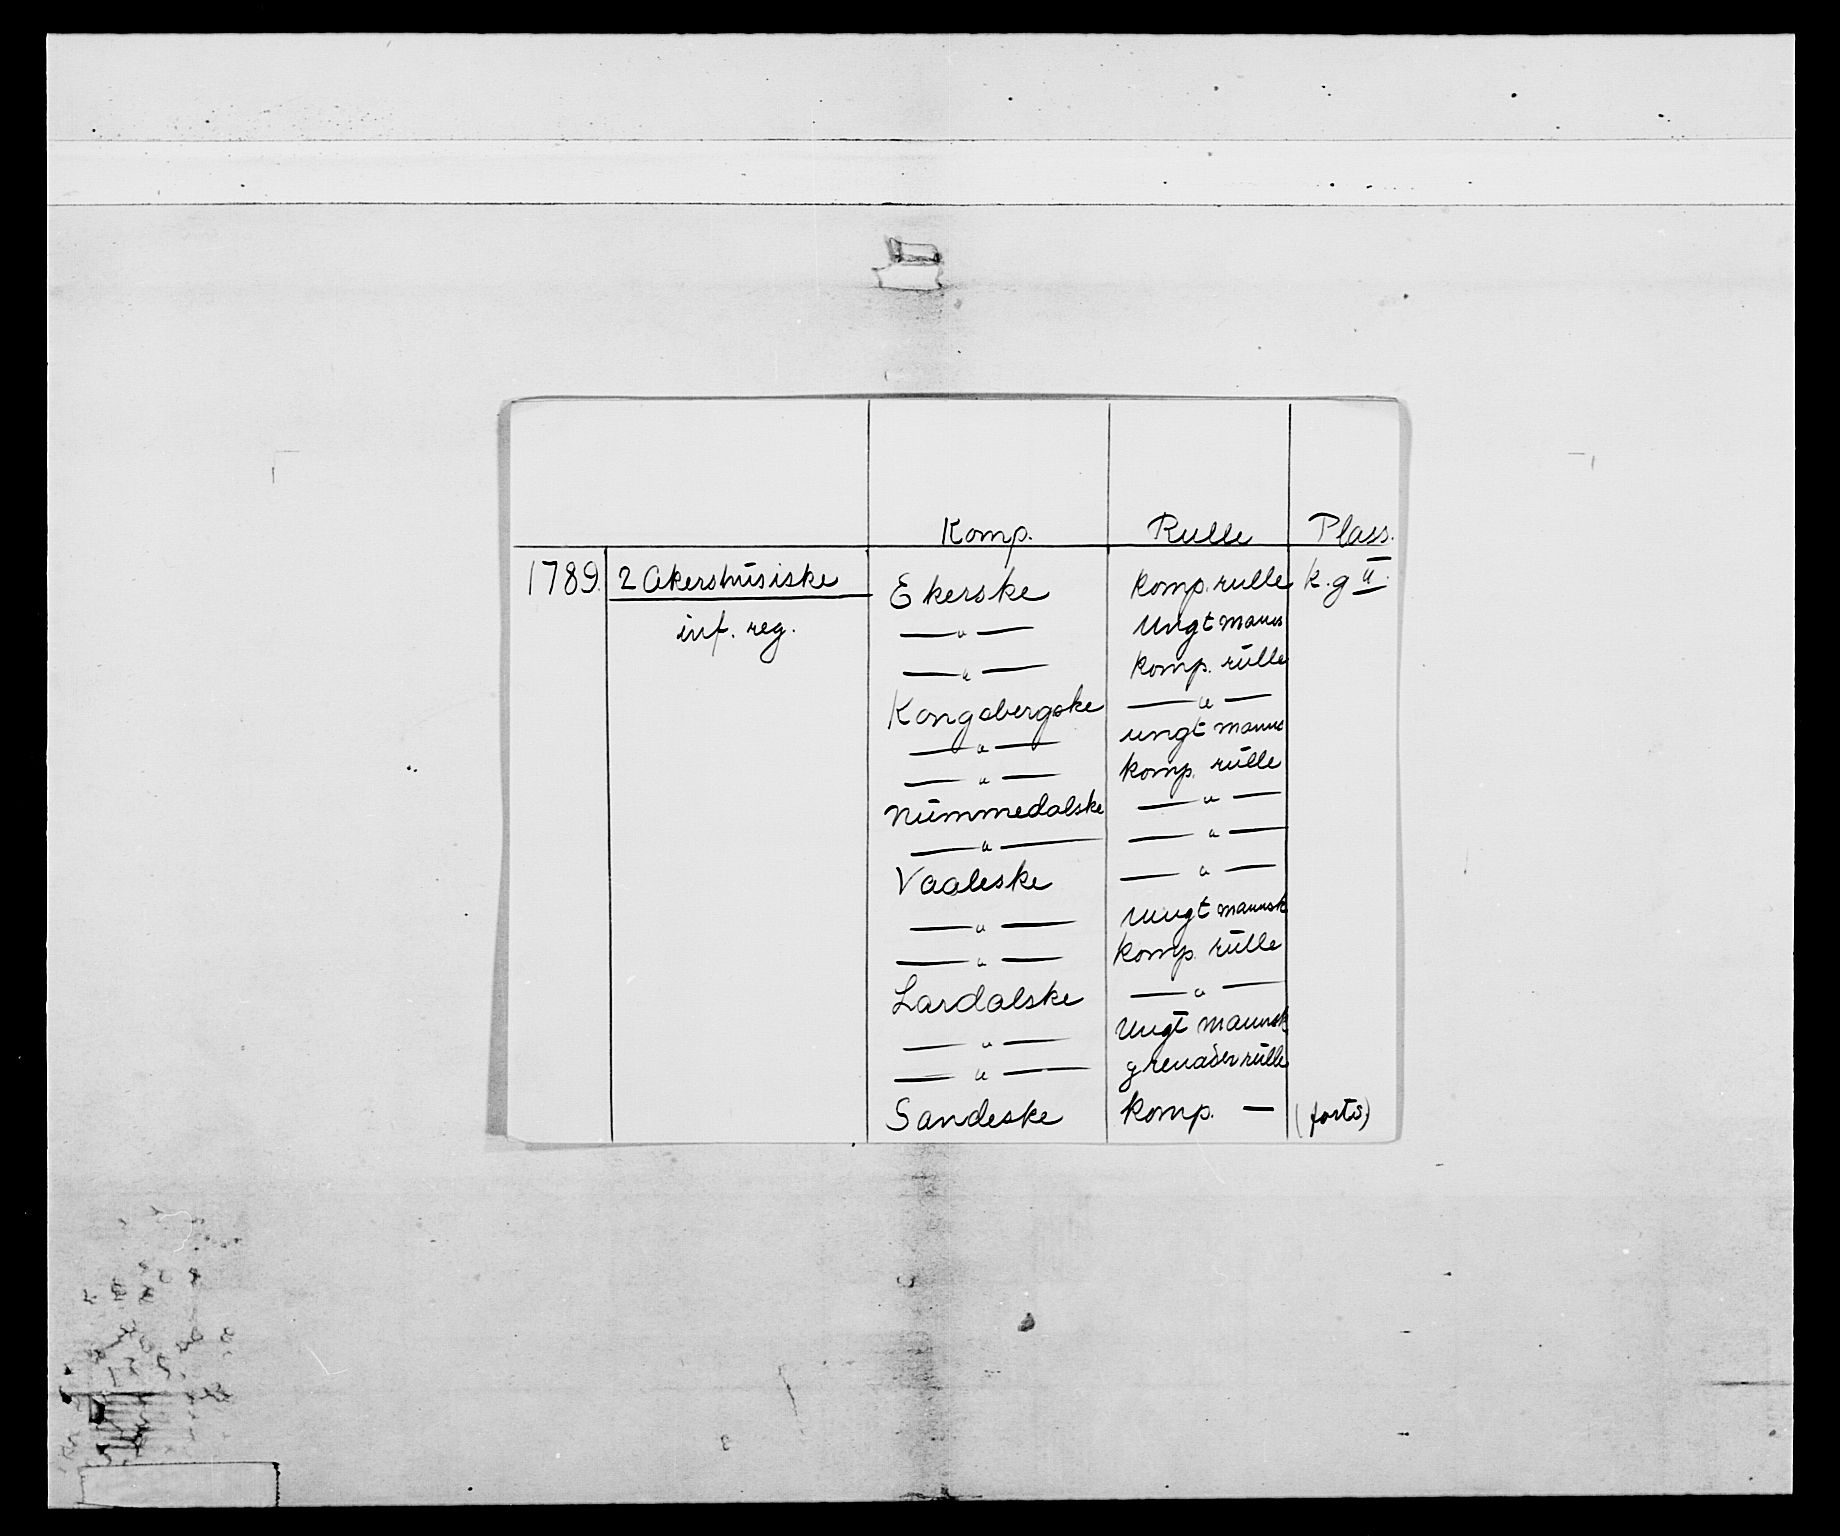 Komp. Rulle Plass.
1789. 2 Akershúsiske Ekerske komp. rulle k.g II.
inf. reg. —"— Ungt manns
—"— komp. rúlle
Kongsbergske —"—
—"— ungt manns
—"— komp. rúlle
Númmedalske —"—
—"— —"—
Vaaleske —"—
—"— Ungt mannsk
—"— komp. rúlle
Lardalske —"—
—"— Ungt mannsk
—"— grenader rúlle
Sandeske komp. — (forts)